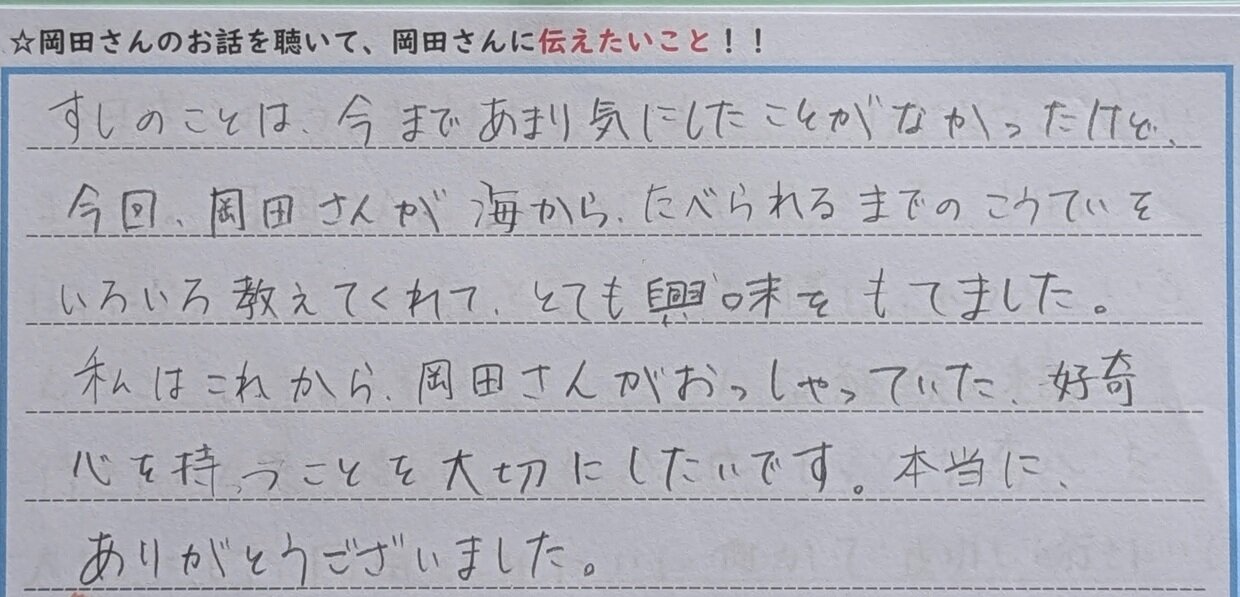 ☆岡田さんのお話を聴いて、岡田さんに伝えたいこと！！
すしのことは、今まであまり気にしたことがなかったけど、
今回、岡田さんが海から、たべられるまでのこうていを
いろいろ教えてくれて、とても興味をもてました。
私はこれから、岡田さんがおっしゃっていた、好奇
心を持つことを大切にしたいです。本当に、
ありがとうございました。